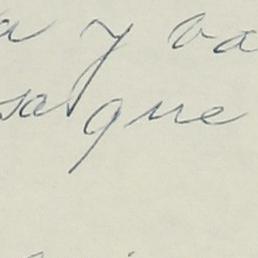 a y va
sas que